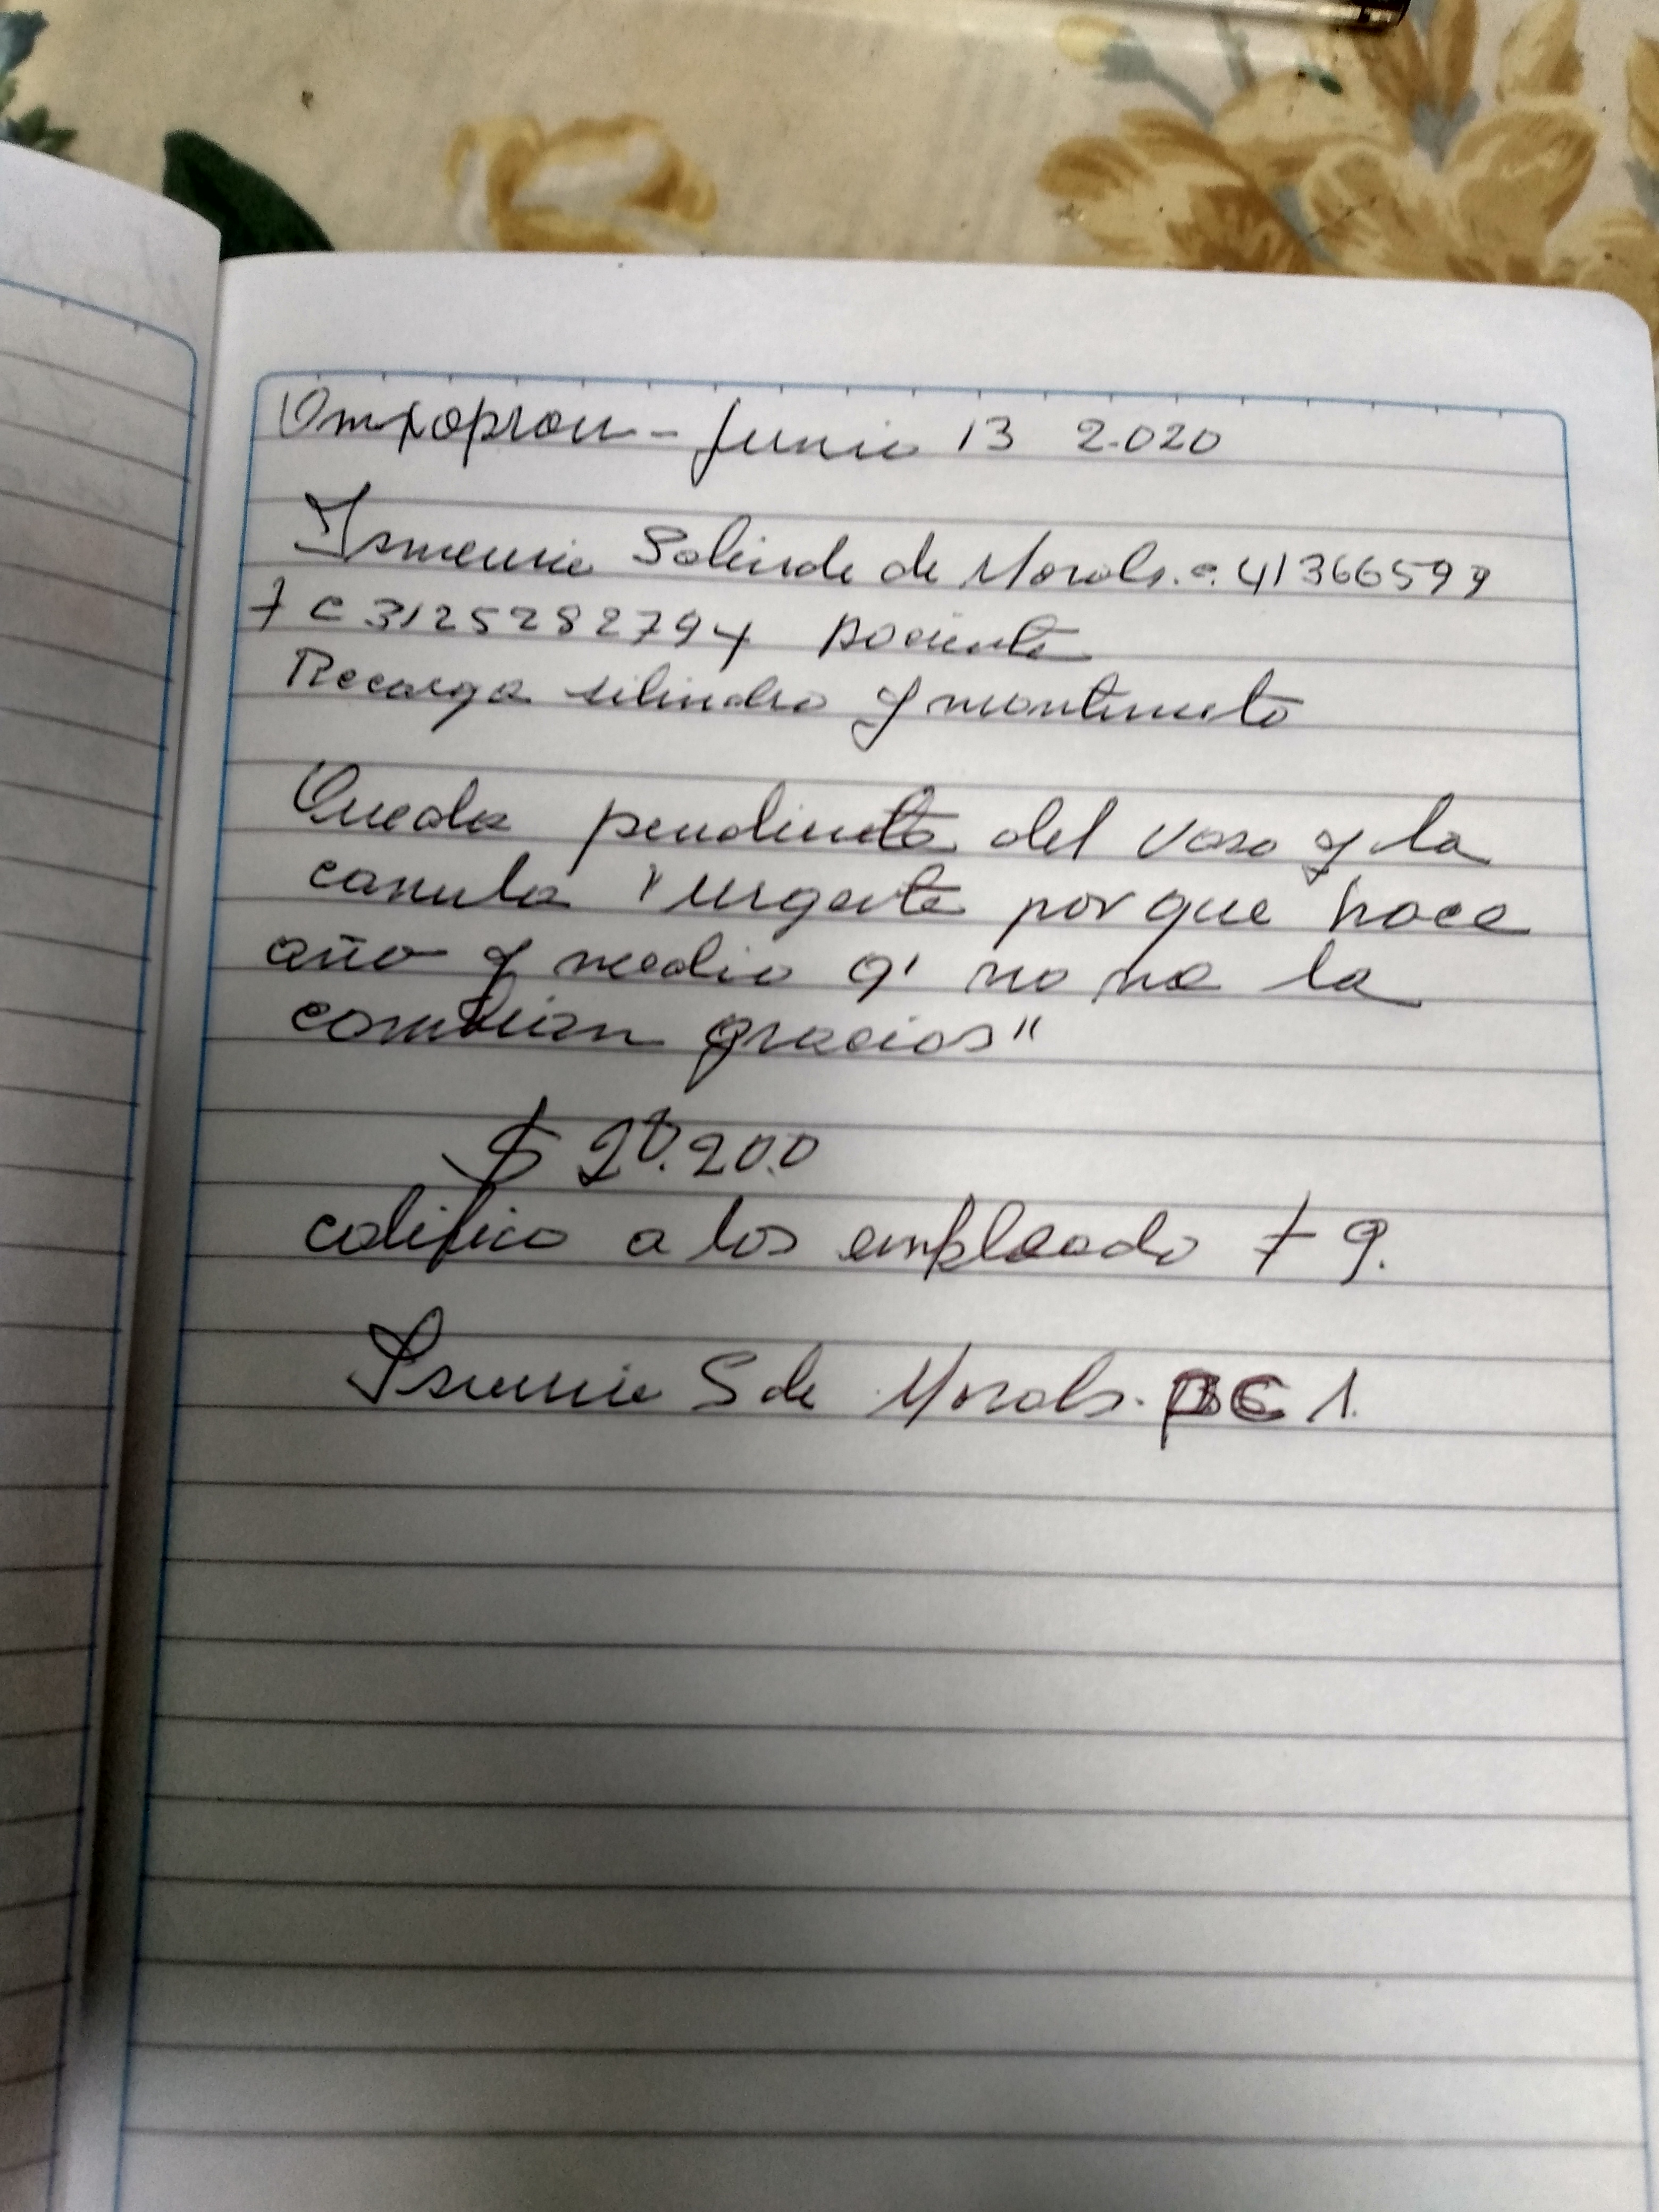 Junio 13 2.020
Ismenia Galinde de Morals. c. 41366599
c 3125282794 paciente
Recarga silindro y mantenimeto
Queda pendiente del vaso y la
canula "urgente por que hace
año y medio q' no me la
cambian gracias"
$ 20.200
califico a los empleado 9.
Ismenia S de Morals. 1.